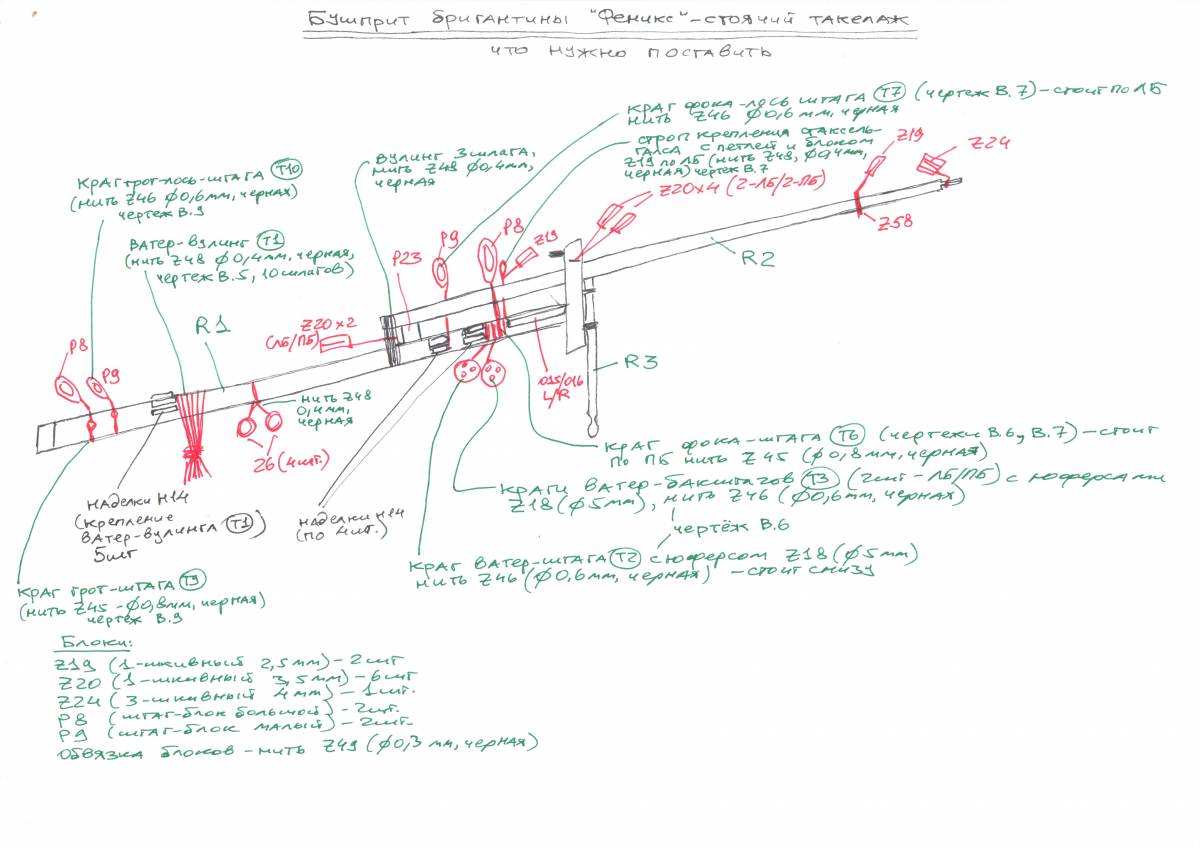 Бушприт бригантины "Феникс" - стоячий такелаж
что нужно поставить
Краг фока-лось штага (Т7) (чертеж В.7) - стоит по ЛБ
нить Z46 Ø0,6мм, черная
строп крепления стаксель-
галса с петлей и блоком
Z19 по ЛБ (нить Z48, Ø0,4мм,
черная) чертеж В.7
Z19
Z24
Вулинг 3 шлага,
нить Z48 Ø0,4мм,
черная
Z20x4 (2-ЛБ/2-ПБ)
Краг грот-лось-штага (Т10)
(нить Z46 Ø0,6мм, черная)
чертеж В.9
Ватер-вулинг (Т1)
(нить Z48 Ø0,4мм, черная,
чертеж В.5, 10 шлагов)
P23
P9
P8
Z19
Z58
R2
R1
Z20x2
(ЛБ/ПБ)
P8
P9
R3
015/016
L/R
нить Z48
0,4мм,
черная
26 (4шт.)
наделки н14
(крепление
ватер-вулинга (Т1))
5шт
наделки н14
(по 4шт.)
Краг фока-штага (Т6) (чертежи В.6 и В.7) - стоит
по ПБ нить Z45 (Ø0,8мм, черная)
Краги ватер-бакштагов (Т3) (2шт - ЛБ/ПБ) с юферсами
Z18 (Ø5мм), нить Z46 (Ø0,6мм, черная)
чертёж В.6
Краг ватер-штага (Т2) с юферсом Z18 (Ø5мм)
нить Z46 (Ø0,6мм, черная) - стоит снизу
Краг грот-штага (Т9)
(нить Z45 - Ø0,8мм, черная)
чертеж В.9
Блоки:
Z19 (1-шкивный 2,5мм) - 2шт
Z20 (1-шкивный 3,5мм) - 6шт
Z24 (3-шкивный 4мм) - 1шт.
P8 (штаг-блок большой) - 2шт.
P9 (штаг-блок малый) - 2шт.
Обвязка блоков - нить Z49 (Ø0,3мм, черная)